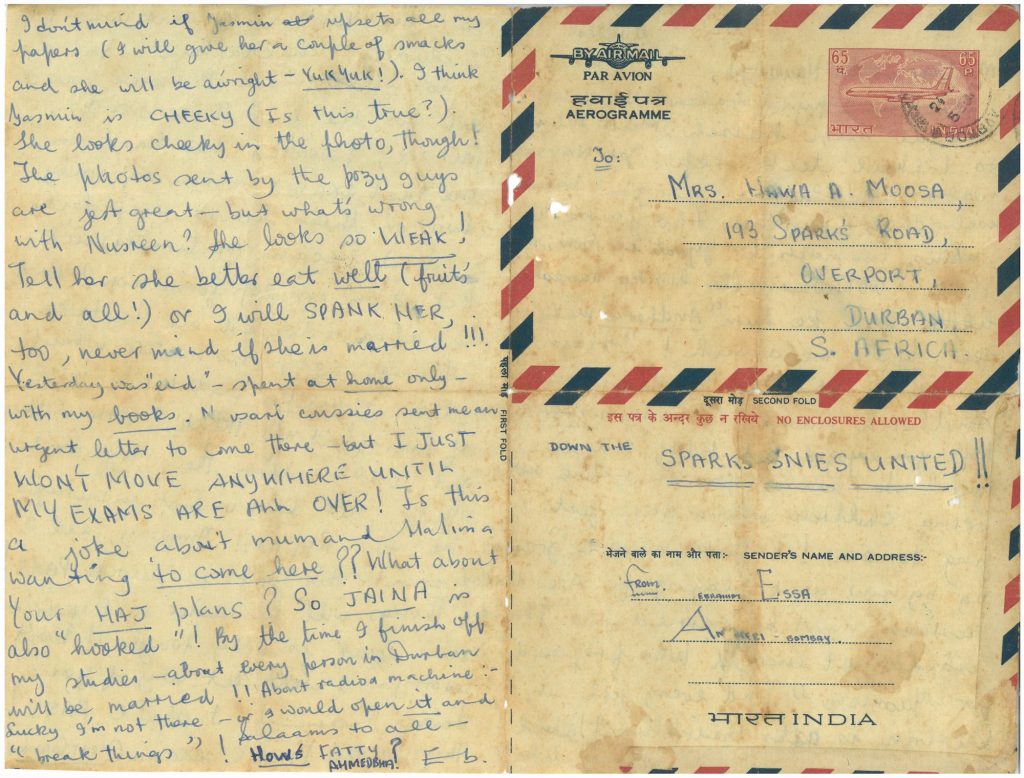 I don't mind if Yasmin at upsets all my
papers (I will give her a couple of smacks
and she will be awright – YUK YUK!). I think
Yasmin is CHEEKY (Is this true?).
She looks cheeky in the photo, though!
The photos sent by the pozy guys
are jest great – but what's wrong
with Nusreen? She looks so WEAK!
Tell her she better eat well (fruits
and all!) or I will SPANK HER,
too, never mind if she is married!!!
Yesterday was "eid" – spent at home only –
with my books. Nvsari coussies sent me an
urgent letter to come there – but I JUST
WON'T MOVE ANYWHERE UNTIL
MY EXAMS ARE ALL OVER! Is this
a joke about mum and Halima
wanting to come here?? What about
Your HAJ plans? So JAINA is
also "hooked"! By the time I finish off
my studies – about every person in Durban
will be married!! About radio & machine :-
Lucky I'm not there – or I would open it and
"break things"! Salaams to all –
How's FATTY AHMEDBHAI? Eb.
पहला मोड़ FIRST FOLD
BY AIR MAIL
PAR AVION
हवाई पत्र
AEROGRAMME
65 प. 65 P.
भारत INDIA
To:
MRS. HAWA A. MOOSA,
193 SPARKS ROAD,
OVERPORT,
DURBAN
S. AFRICA.
दूसरा मोड़ SECOND FOLD
इस पत्र के अन्दर कुछ न रखिये NO ENCLOSURES ALLOWED
DOWN THE SPARKS 'SNIES UNITED!!
भेजने वाले का नाम और पता:- SENDER'S NAME AND ADDRESS:-
From. EBRAHIM ESSA
ANDHERI - BOMBAY.
भारत INDIA